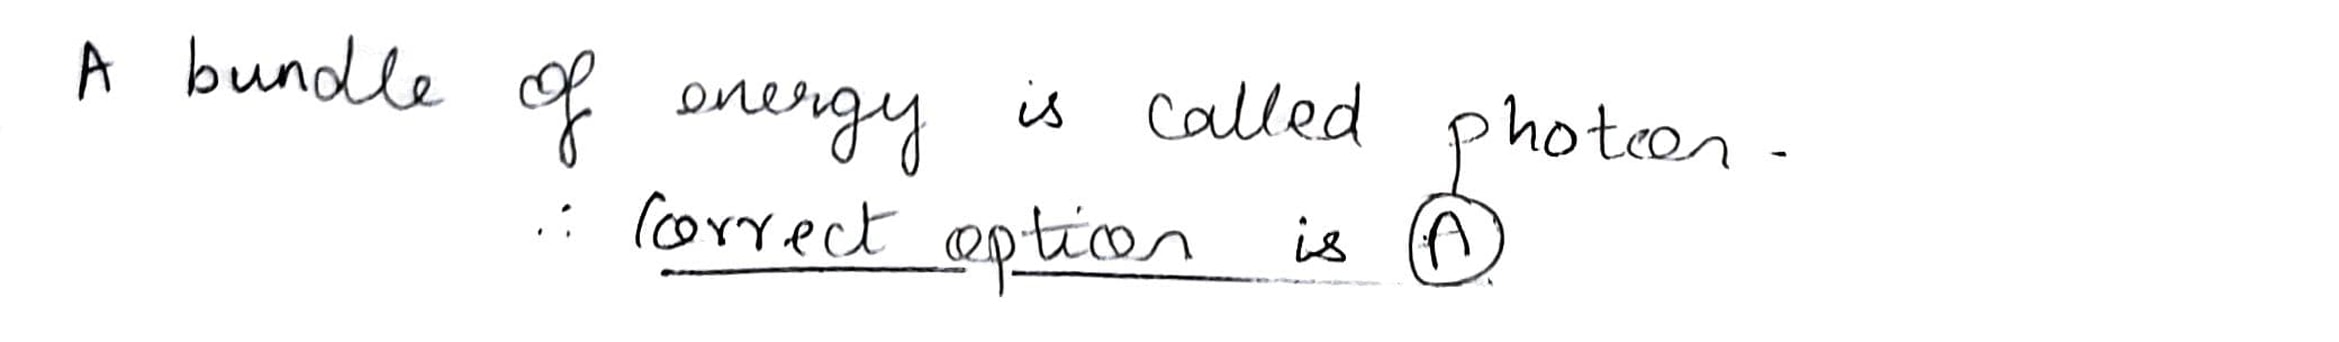 A bundle of energy is called photon.
∴ Correct option is A